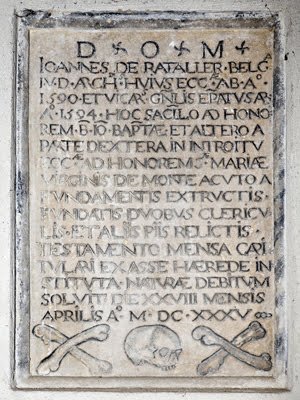 D + O + M +
IOANNES DE RATALLER BELGˀ
IV·D·ARCH· HVIVS ECCˀ AB·A°
1590·ET VICAR GNLIS EPATVS A
A° 1594· HOC SACELO AD HONO
REM·B·IO BAPTÆ ET ALTERO A
PATE DEXTERA IN INTROITV
ECCˀ AD HONOREM Sˀ MARIÆ
VIRGINIS DE MONTE ACVTO A
FVNDAMENTIS EXTRVCTIS
FVNDATIS DVOBVS CLERICV
LIS·ET ALIIS PIIS RELICTIS
TESTAMENTO MENSA CAPI
TVLARI EX ASSE HÆREDE IN
STITVTA· NATVRÆ DEBITVM
SOLVIT DIE XXVIII MENSIS
APRILIS A° M·DC·XXXV